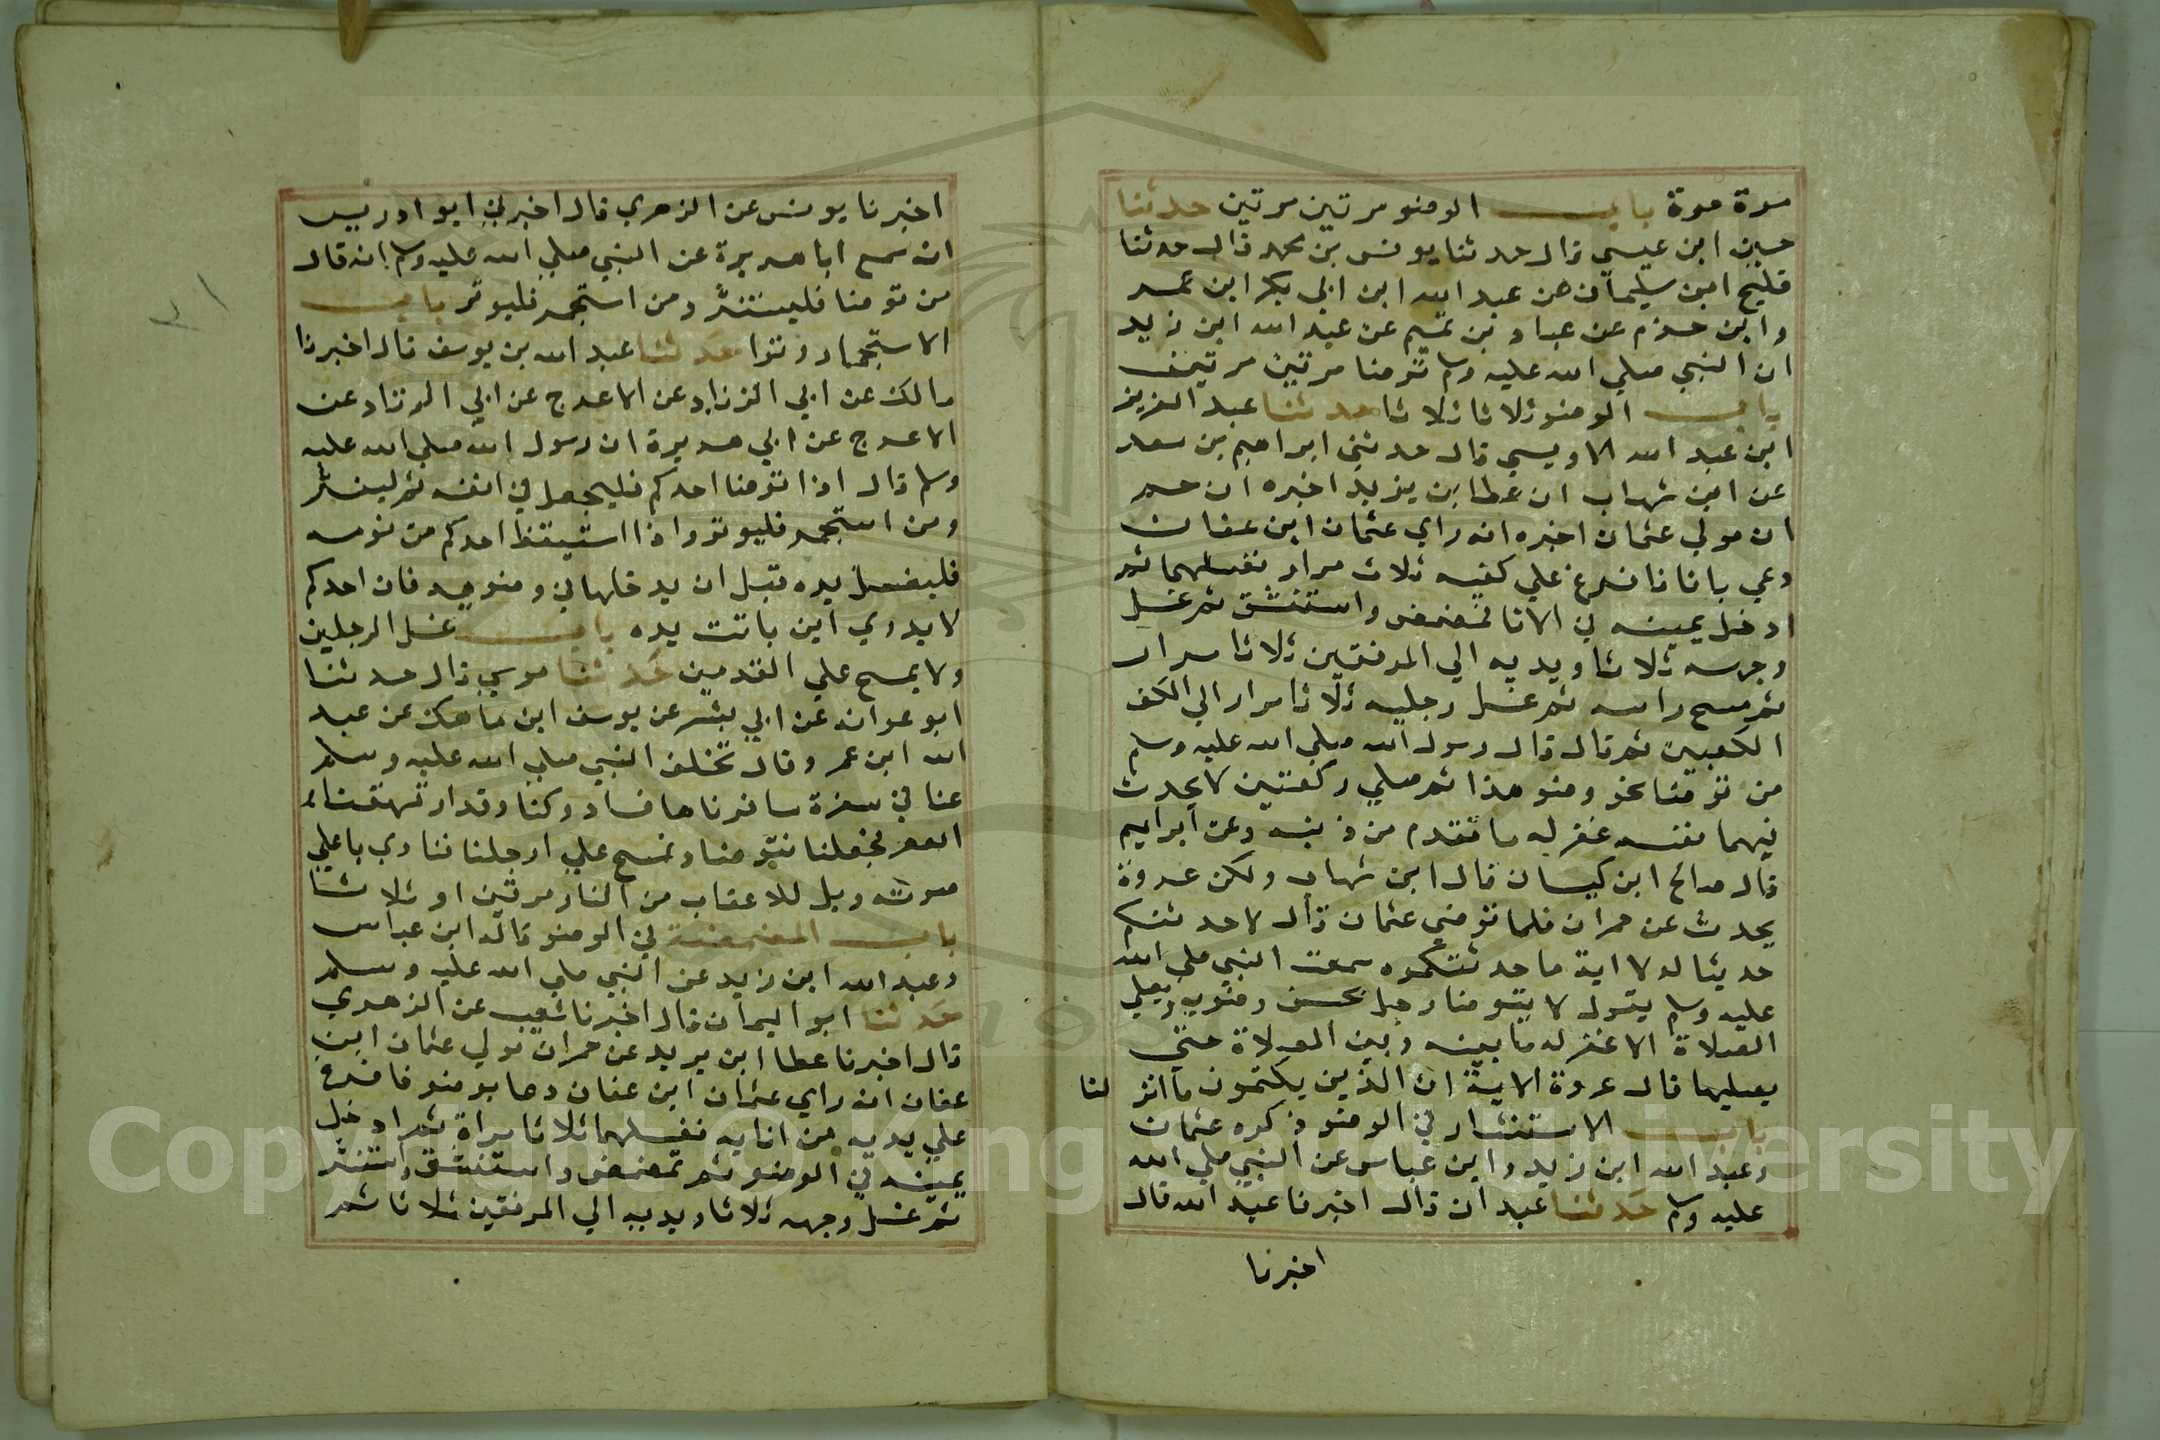 مرة مرة باب الوضو مرتين مرتين حدثنا
حسين ابن عيسي قال حدثنا يونس بن محمد قال حدثنا
فليح ابن سليمان عن عبد الله ابن ابي بكر ابن عمر
وابن حزم عن عباد بن تميم عن عبد الله ابن زيد
ان النبي صلي الله عليه وسلم توضا مرتين مرتين
باب الوضو ثلاثا ثلاثا حدثنا عبد العزيز
ابن عبد الله الاويسي قال حدثني ابراهيم بن سعد
عن ابن شهاب ان عطا بن يزيد اخبره ان حمر
ان مولي عثمان اخبره انه راي عثمان ابن عفان
دعي بانا فافرغ علي كفيه ثلاث مرار فغسلهما ثم
ادخل يمينه في الانا فمضمض واستنشق ثم غسل
وجهه ثلاثا ويديه الي المرفقين ثلاثا مرار
ثم مسح راسه ثم غسل رجليه ثلاثا مرار الي الكف
الكعبين ثم قال قال رسول الله صلي الله عليه وسلم
من توضا نحو وضو هذا ثم صلي ركعتين لا يحدث
فيهما نفسه غفر له ما تقدم من ذنبه وعن ابراهيم
قال صالح ابن كيسان قال ابن شهاب ولكن عروة
يحدث عن حمران فلما توضي عثمان قال لاحدثنكم
حديثا لولا اية ما حدثتكموه سمعت النبي صلي الله
عليه وسلم يقول لا يتوضا رجل يحسن وضويه ويصلي
الصلاة الا غفر له ما بينه وبين الصلاة حتي
يصليها قال عروة الاية ان الذين يكتمون ما انز لنا
باب الاستنثار في الوضو ذكره عثمان
وعبد الله ابن زيد وابن عباس عن النبي صلي الله
عليه وسلم حدثنا عبدان قال اخبرنا عبد الله قال
اخبرنا
اخبرنا يونس عن الزهري قال اخبرني ابو ادريس
انه سمع ابا هريرة عن النبي صلي الله عليه وسلم انه قال
من توضا فليستنثر ومن استجمر فليوتر باب
الاستجمار وترا حدثنا عبد الله بن يوسف قال اخبرنا
مالك عن ابي الزناد عن الاعرج عن ابي الزناد عن
الاعرج عن ابي هريرة ان رسول الله صلي الله عليه
وسلم قال اذا توضا احدكم فليجعل في انفه ثم لينثر
ومن استجمر فليوتر واذا استيقظ احدكم من نومه
فليغسل يده قبل ان يدخلها في وضويه فان احدكم
لا يدري اين باتت يده باب غسل الرجلين
ولا يمسح علي القدمين حدثنا موسي قال حدثنا
ابو عوانه عن ابي بشر عن يوسف ابن ماهك عن عبد
الله ابن عمر وقال تخلف النبي صلي الله عليه وسلم
عنا في سفرة سافرناها فادركنا وقد ارهقنا
العصر فجعلنا نتوضا ونمسح علي ارجلنا فنادي باعلي
صوته ويل للاعقاب من النار مرتين او ثلاثا
باب المضمضة في الوضو قاله ابن عباس
وعبد الله ابن زيد عن النبي صلي الله عليه وسلم
حدثنا ابو اليمان قال اخبرنا شعيب عن الزهري
قال اخبرنا عطا ابن يزيد عن حمران مولي عثمان ابن
عفان انه راي عثمان ابن عفان دعا بوضو فافرغ
علي يديه من انايه فغسلهما ثلاثا مراة ثم ادخل
يمينه في الوضو ثم تمضمض واستنشق واستنثر
ثم غسل وجهه ثلاثا ويديه الي المرفقين ثلاثا ثم
Copyright © King Saud University